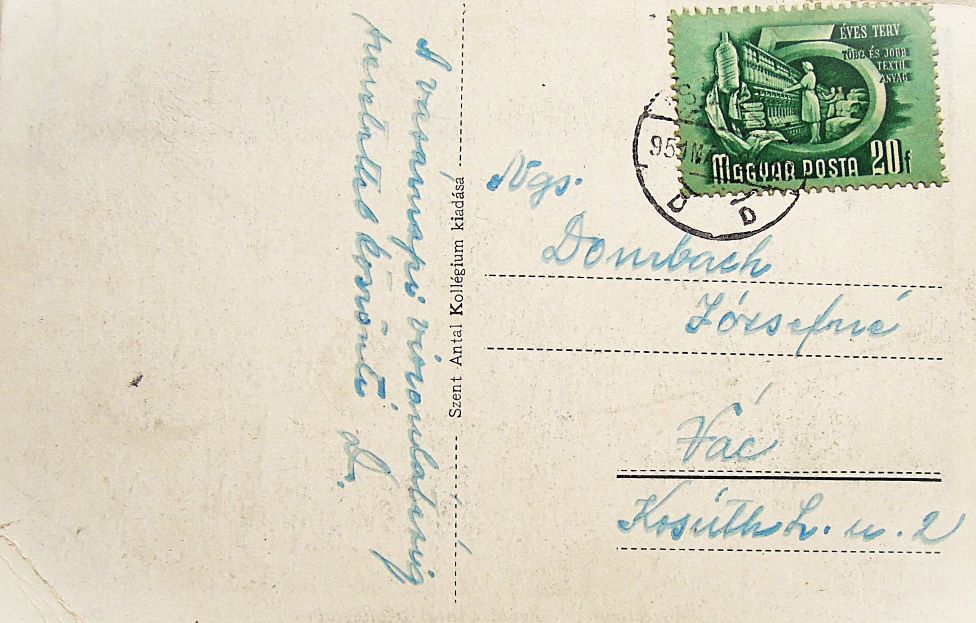 A vasárnapi viszonlátásig
szeretettel köszönti D.
Szent Antal Kollégium kiadása
5 ÉVES TERV
TÖBB ÉS JOBB
TEXTIL
ANYAG
MAGYAR POSTA 20f
Ngs.
Dombach
Józsefné
Vác
Kosúth L. u. 2